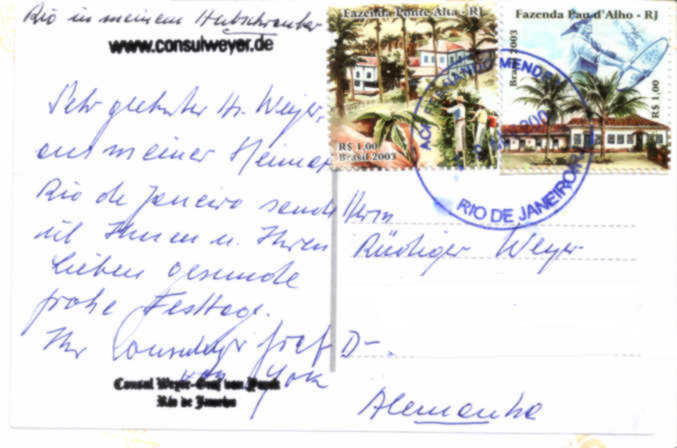 Rio in meinem Hubschrauber
www.consulweyer.de
Sehr geehrter Hr. Weyer,
aus meiner Heimat
Rio de Janeiro sende
ich Ihnen u. Ihren
Lieben gesunde
frohe Festtage.
Ihr Consul Graf
von York
Consul Weyer-Graf von York
Rio de Janeiro
Fazenda Ponte Alta - RJ
R$ 1,00
Brasil 2003
Fazenda Pau d'Alho - RJ
Brasil 2003
R$ 1,00
MENDES
RIO DE JANEIRO RJ
Herrn
Rüdiger Weyer
D-
Alemanha